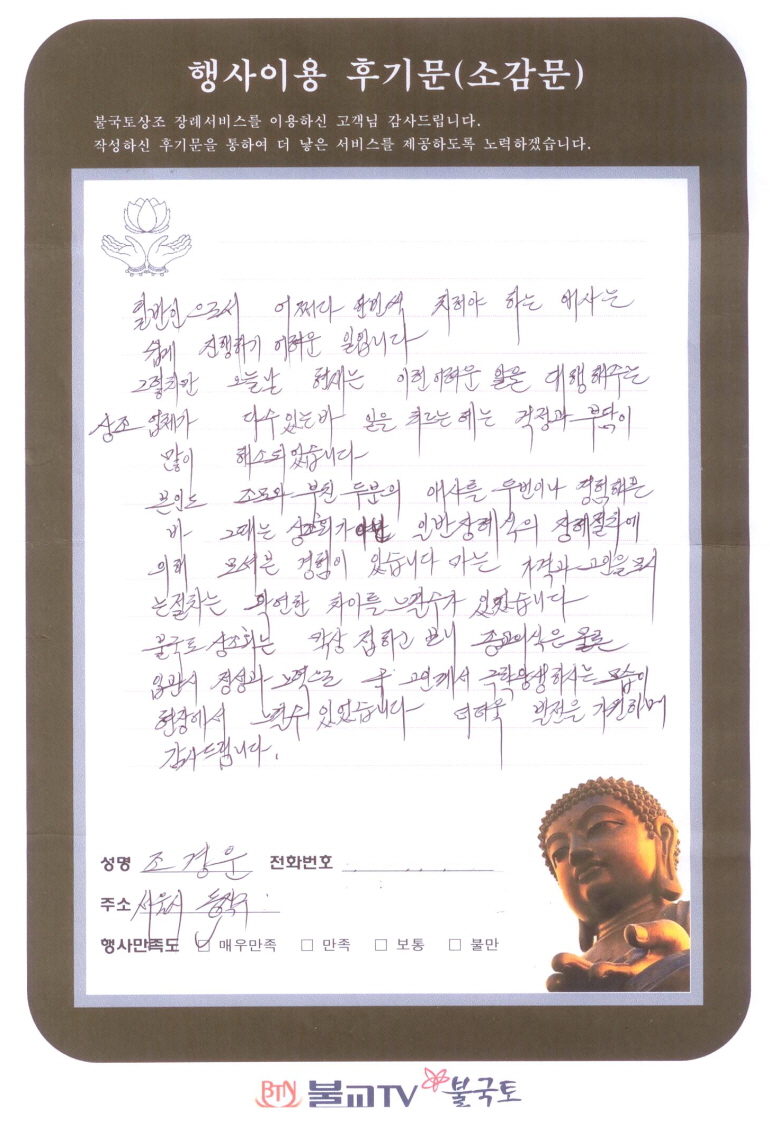 행사이용 후기문(소감문)
불국토상조 장례서비스를 이용하신 고객님 감사드립니다.
작성하신 후기문을 통하여 더 낳은 서비스를 제공하도록 노력하겠습니다.
일반인으로서 어쩌다 한번씩 치러야 하는 애사는
쉽게 진행하기 어려운 일입니다
그렇지만 오늘날 현재는 이런 어려운 일을 대행해주는
상조 업체가 다수 있는바 일을 치르는데는 걱정과 부담이
많이 해소되었습니다
본인도 조모와 부친 두분의 애사를 두번이나 경험해본
바 그때는 상조회가 아닌 일반장례식의 장례절차에
의해 모셔본 경험이 있습니다 가격과 고인을 모시
는절차는 확연한 차이를 느낄수가 있었습니다
불국토 상조회는 막상 접하고 보니 종교의식은 물론
입관시 정성과 노력으로 고인께서 극락왕생하시는 모습이
현장에서 느낄수 있었습니다 더더욱 발전을 기원하며
감사드립니다.
성명 조경운 전화번호
주소 서울시 동작구
행사만족도 ☑ 매우만족 □ 만족 □ 보통 □ 불만
BTN 불교TV 불국토